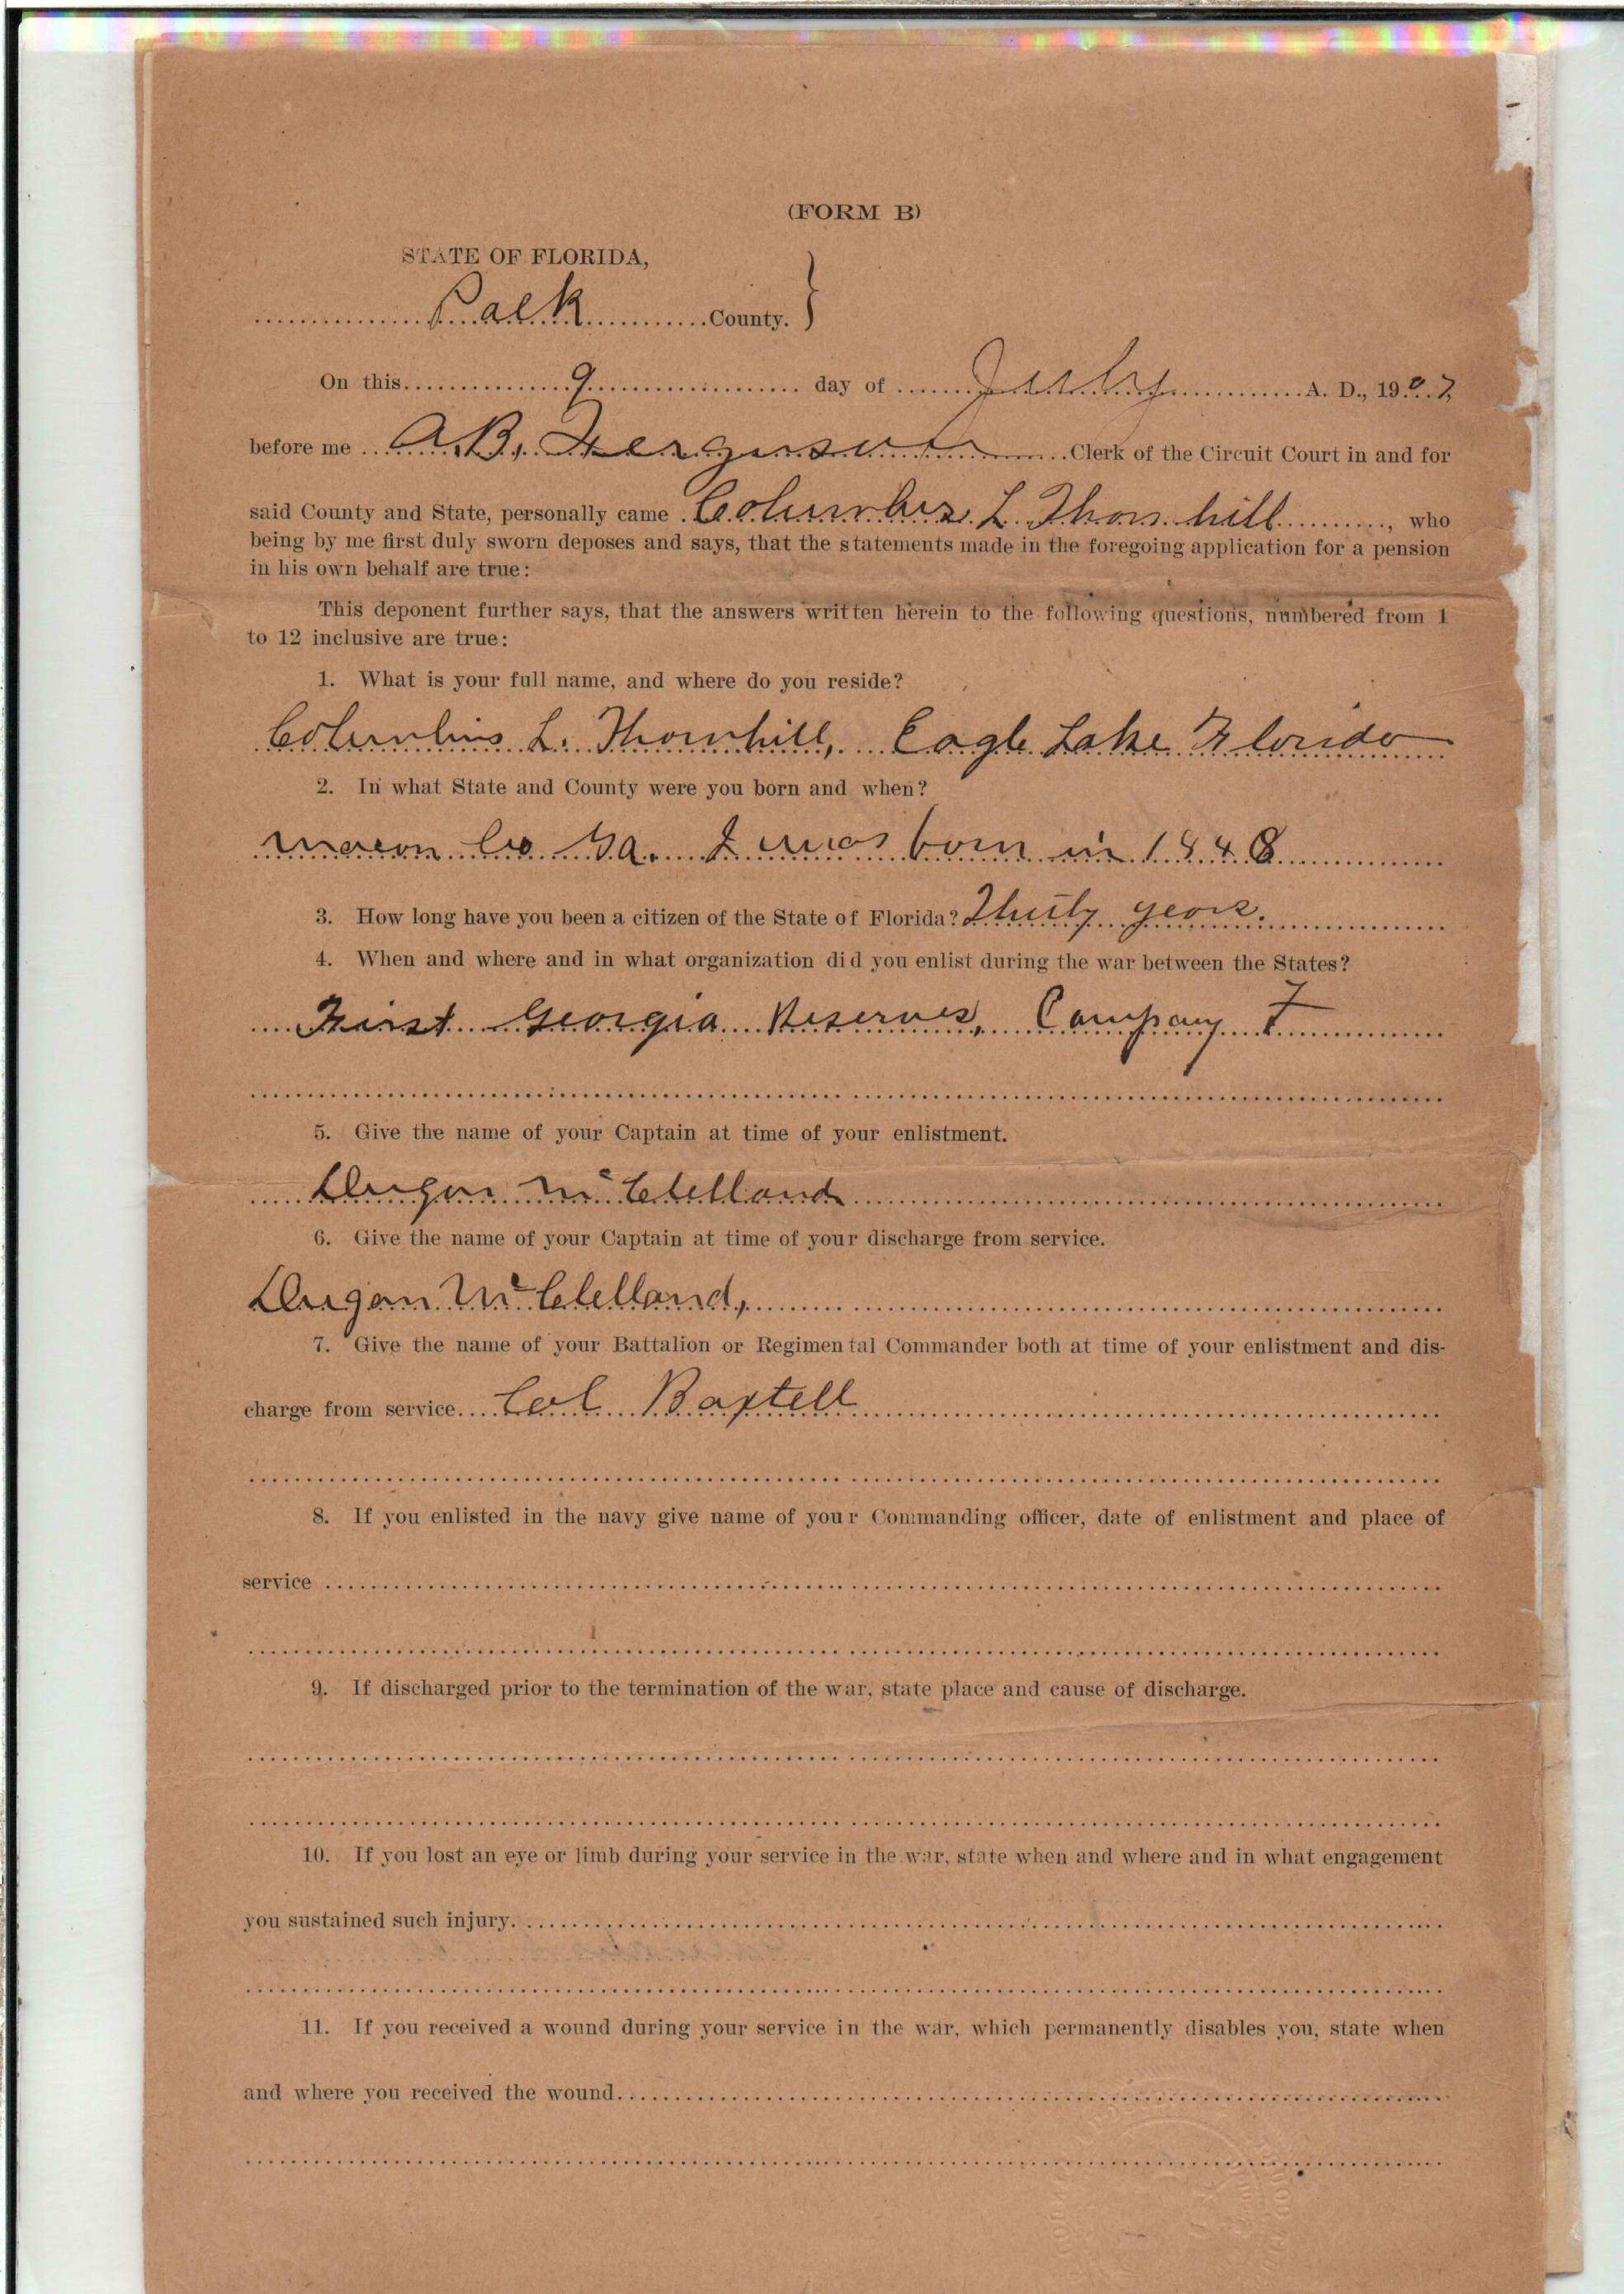 (FORM B)
STATE OF FLORIDA,
Polk County. }
On this 9 day of July A. D., 1907
before me A. B. Ferguson Clerk of the Circuit Court in and for
said County and State, personally came Columbus L. Thornhill, who
being by me first duly sworn deposes and says, that the statements made in the foregoing application for a pension
in his own behalf are true:
This deponent further says, that the answers written herein to the following questions, numbered from 1
to 12 inclusive are true:
1. What is your full name, and where do you reside?
Columbus L. Thornhill, Eagle Lake Florida
2. In what State and County were you born and when?
Macon Co Ga. I was born in 1848
3. How long have you been a citizen of the State of Florida? Thirty years.
4. When and where and in what organization did you enlist during the war between the States?
First Georgia Reserves, Company F
5. Give the name of your Captain at time of your enlistment.
Dugan McClelland
6. Give the name of your Captain at time of your discharge from service.
Dugan McClelland,
7. Give the name of your Battalion or Regimental Commander both at time of your enlistment and dis-
charge from service. Col.
8. If you enlisted in the navy give name of your Commanding officer, date of enlistment and place of
service
9. If discharged prior to the termination of the war, state place and cause of discharge.
10. If you lost an eye or limb during your service in the war, state when and where and in what engagement
you sustained such injury.
11. If you received a wound during your service in the war, which permanently disables you, state when
and where you received the wound.